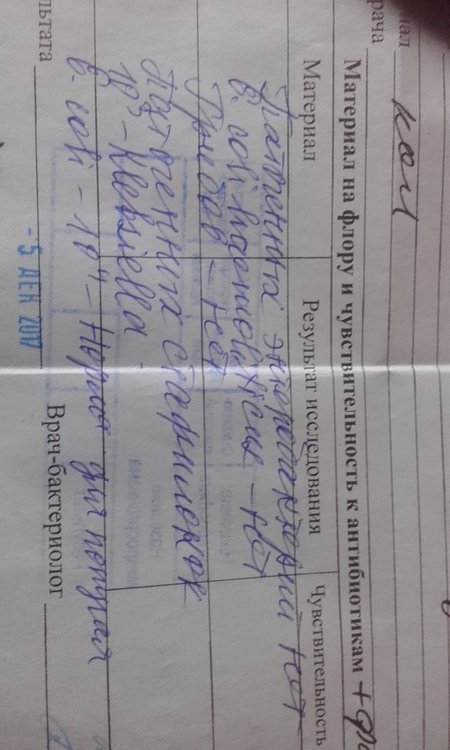 иал кал
рача
Материал на флору и чувствительность к антибиотикам +
Материал Результат исследования Чувствительность
Патогенных энтеробактерий нет
E. coli – нет
Грибов – нет
Патогенных стафилокок
10³ – Klebsiella
E. coli – 10⁴ – Норма для попугая
льтата - 5 ДЕК 2017 Врач-бактериолог